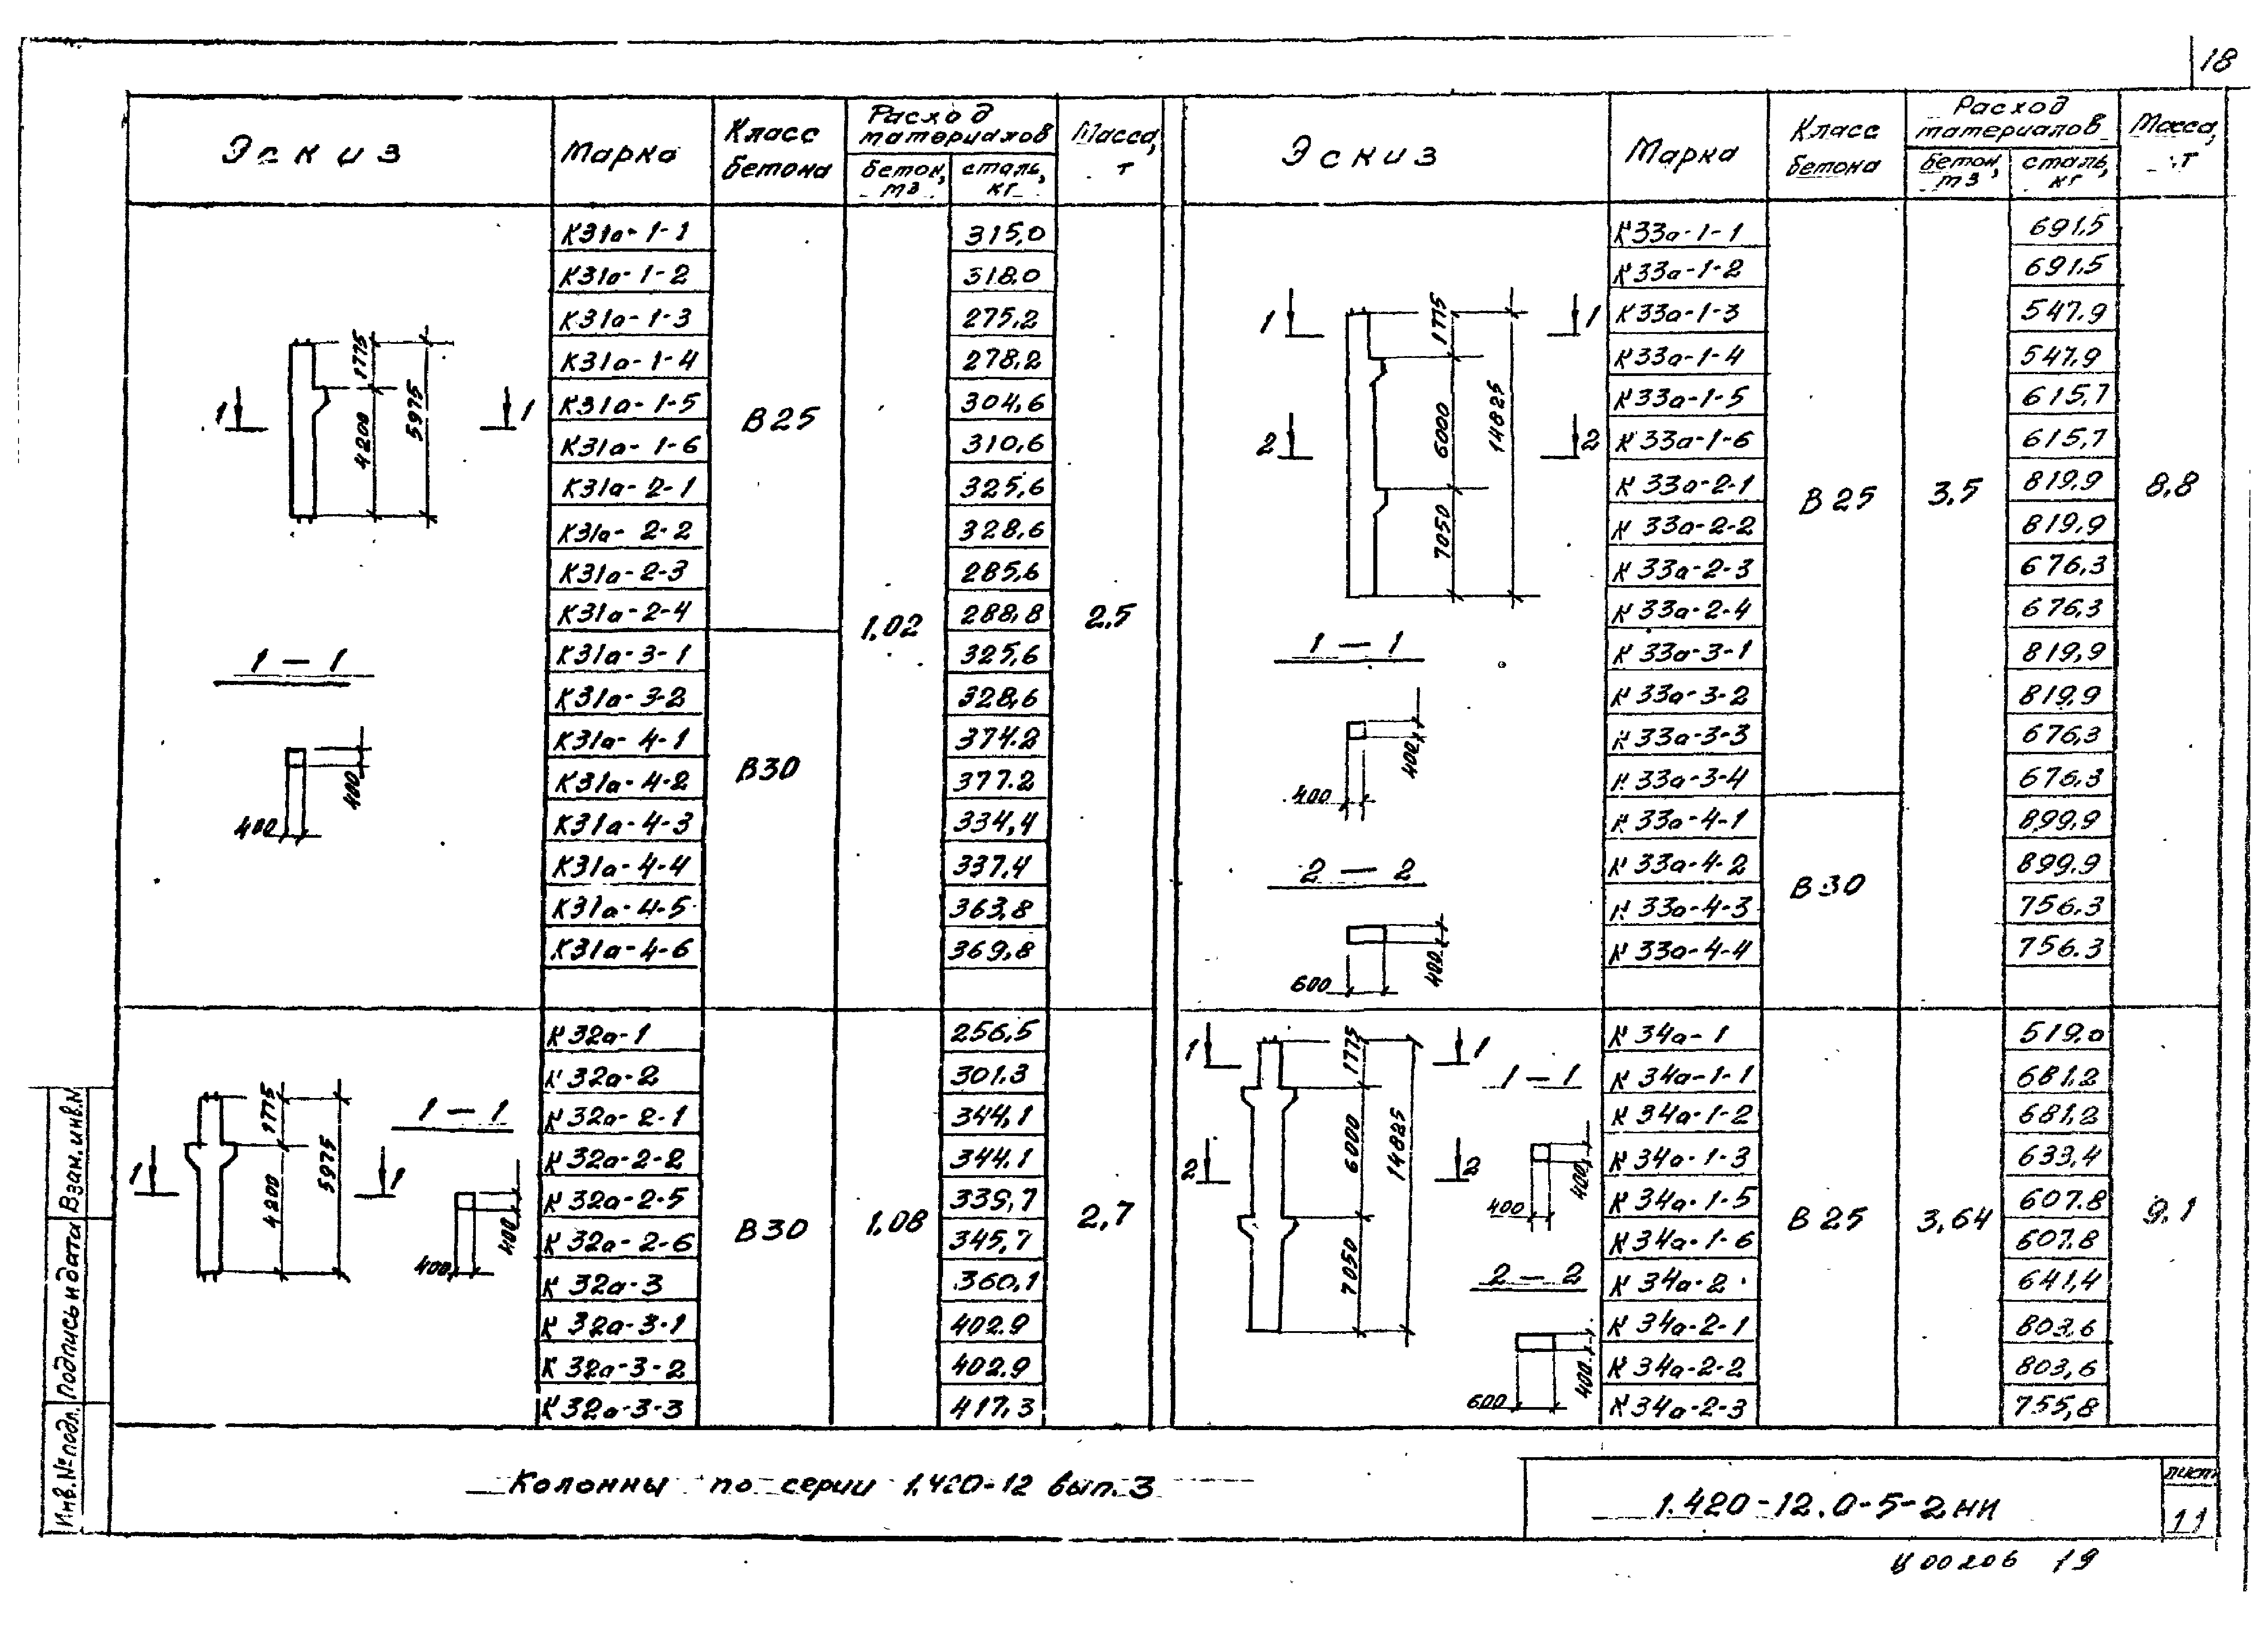 18
Эскиз Марка Класс бетона Расход материалов бетон, м3 сталь, кг Масса, т
К31а-1-1 315,0
К31а-1-2 318.0
К31а-1-3 275.2
К31а-1-4 278.2
К31а-1-5 304,6
К31а-1-6 310,6
К31а-2-1 325,6
К31а-2-2 328,6
К31а-2-3 285,6
К31а-2-4 288,8
В25
К31а-3-1 325,6
К31а-3-2 328,6
К31а-4-1 374.2
К31а-4-2 377.2
К31а-4-3 334,4
К31а-4-4 337,4
К31а-4-5 363,8
К31а-4-6 369,8
В30
1.02
2.5
1 1
1775
4200
5975
1-1
400
400
К32а-1 256,5
К32а-2 301.3
К32а-2-1 344,1
К32а-2-2 344.1
К32а-2-5 339,7
К32а-2-6 345,7
К32а-3 360,1
К32а-3-1 402.9
К32а-3-2 402.9
К32а-3-3 417,3
В30
1.08
2,7
1 1
1775
4200
5975
1-1
400
400
Эскиз Марка Класс бетона Расход материалов бетон, м3 сталь, кг Масса, т
К33а-1-1 691,5
К33а-1-2 691,5
К33а-1-3 547.9
К33а-1-4 547,9
К33а-1-5 615,7
К33а-1-6 615,7
К33а-2-1 819,9
К33а-2-2 819,9
К33а-2-3 676,3
К33а-2-4 676,3
К33а-3-1 819,9
К33а-3-2 819,9
К33а-3-3 676,3
К33а-3-4 676.3
В25
К33а-4-1 899,9
К33а-4-2 899.9
К33а-4-3 756.3
К33а-4-4 756.3
В30
3,5
8,8
1 1
2 2
1775
6000
7050
14825
1-1
400
400
2-2
600
400
К34а-1 519,0
К34а-1-1 681,2
К34а-1-2 681,2
К34а-1-3 633,4
К34а-1-5 607.8
К34а-1-6 607.8
К34а-2 641,4
К34а-2-1 803,6
К34а-2-2 803,6
К34а-2-3 755,8
В25
3,64
9.1
1 1
2 2
1775
6000
7050
14825
1-1
400
400
2-2
600
400
Инв.№ подл. Подпись и дата Взам. инв.№
Колонны по серии 1.420-12 вып.3
1.420-12.0-5-2НИ
лист
11
Ц00206 19